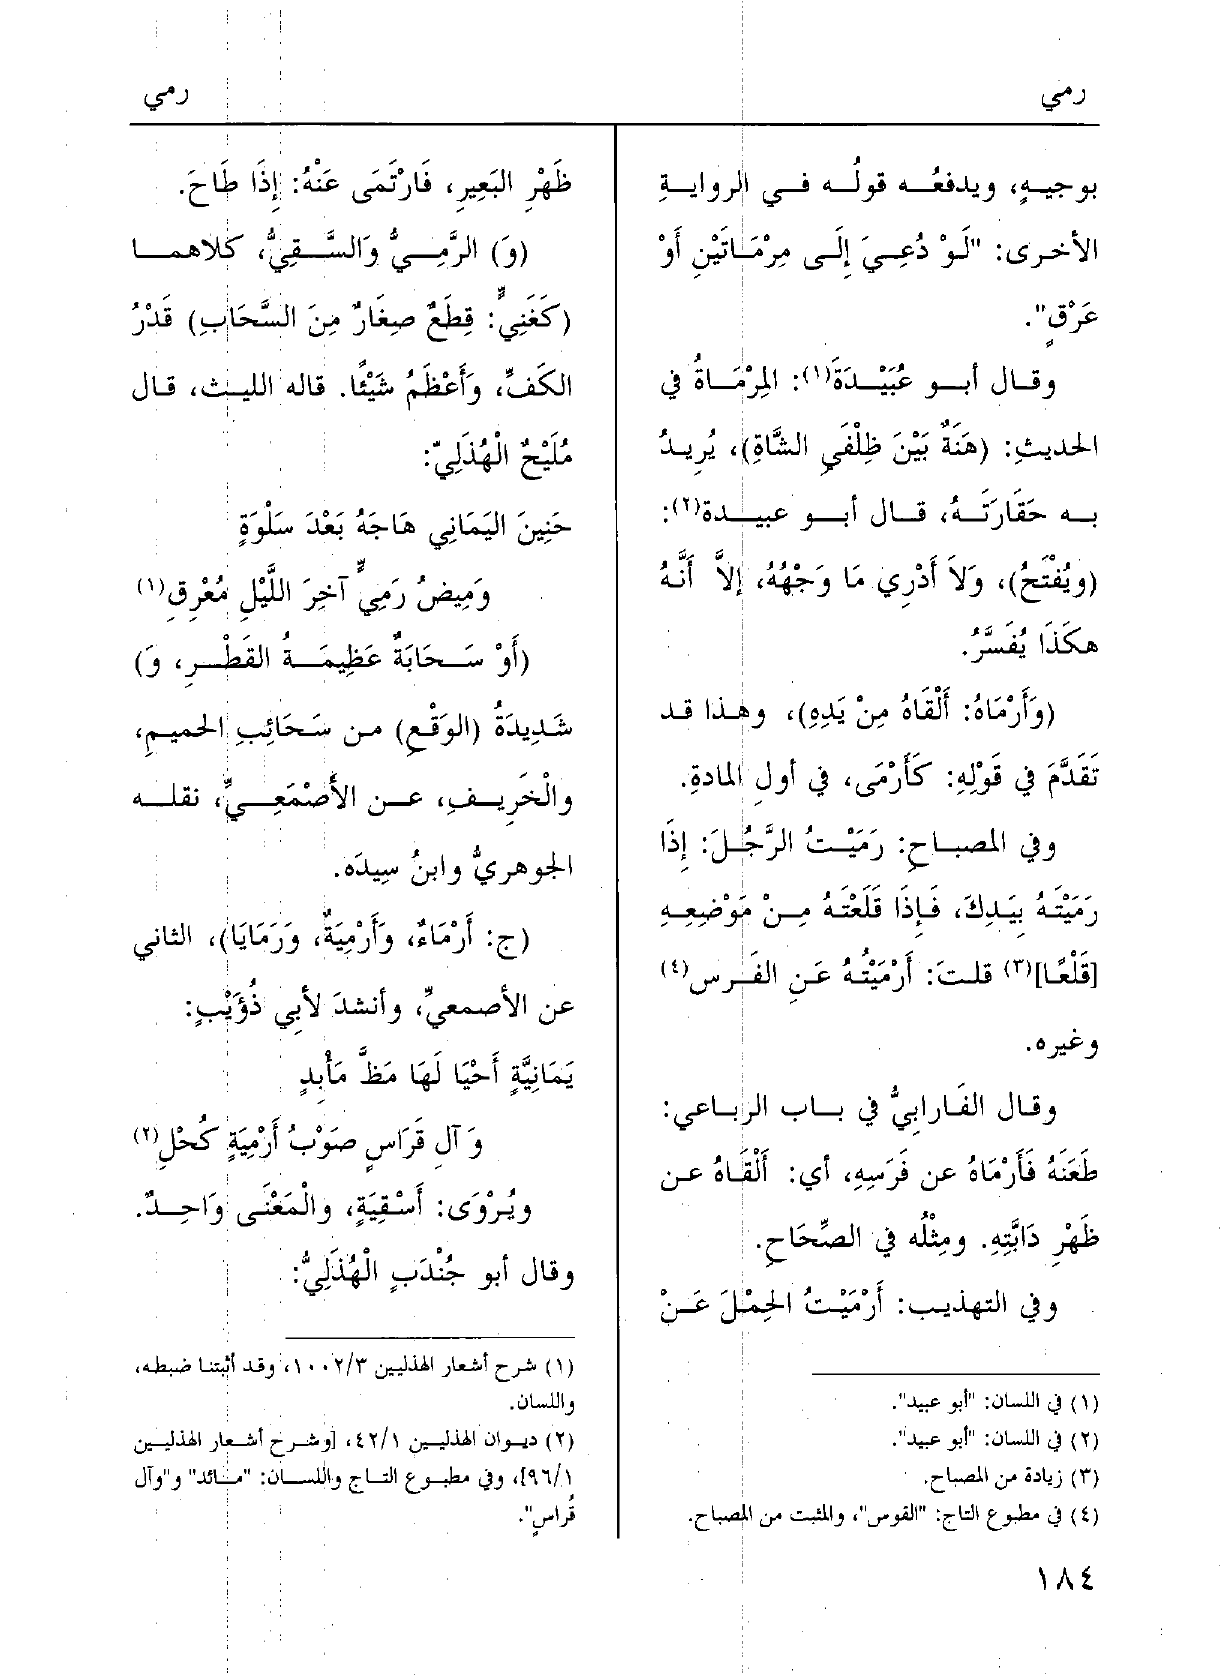 رمي
رمي
بوجيهٍ، ويدفعُه قولُه في الروايةِ
الأخرى: "لَوْ دُعِيَ إِلَى مِرْمَاتَيْنِ أَوْ
عَرْقٍ".
وقال أبو عُبَيْدَةَ(١): المِرْمَاةُ في
الحديثِ: (هَنَةٌ بَيْنَ ظِلْفَيِ الشَّاةِ)، يُرِيدُ
به حَقَارَتَهُ، قال أبو عبيدة(٢):
(ويُفْتَحُ)، وَلاَ أَدْرِي مَا وَجْهُهُ، إلاَّ أَنَّهُ
هكَذَا يُفَسَّرُ.
(وَأَرْمَاهُ: أَلْقَاهُ مِنْ يَدِهِ)، وهذا قد
تَقَدَّمَ في قَوْلِهِ: كَأَرْمَى، في أولِ المادةِ.
وفي المصباحِ: رَمَيْتُ الرَّجُلَ: إِذَا
رَمَيْتَهُ بِيَدِكَ، فَإِذَا قَلَعْتَهُ مِنْ مَوْضِعِهِ
[قَلْعًا](٣) قلتَ: أَرْمَيْتُهُ عَنِ الفَرسِ(٤)
وغيره.
وقال الفَارابيُّ في باب الرباعي:
طَعَنَهُ فَأَرْمَاهُ عن فَرَسِهِ، أي: أَلْقَاهُ عن
ظَهْرِ دَابَّتِهِ. ومِثْلُه في الصِّحَاحِ.
وفي التهذيب: أَرْمَيْتُ الحِمْلَ عَنْ
(١) في اللسان: "أبو عبيد".
(٢) في اللسان: "أبو عبيد".
(٣) زيادة من المصباح.
(٤) في مطبوع التاج: "القوس"، والمثبت من المصباح.
ظَهْرِ البَعِيرِ، فَارْتَمَى عَنْهُ: إِذَا طَاحَ.
(وَ) الرَّمِيُّ وَالسَّقِيُّ، كلاهما
(كَغَنِيٍّ: قِطَعٌ صِغَارٌ مِنَ السَّحَابِ) قَدْرُ
الكَفِّ، وَأَعْظَمُ شَيْئًا. قاله الليث، قال
مُلَيْحٌ الْهُذَلِيّ:
حَنِينَ اليَمَانِي هَاجَهُ بَعْدَ سَلْوَةٍ
وَمِيضُ رَمِيٍّ آخِرَ اللَّيْلِ مُعْرِقِ(١)
(أَوْ سَحَابَةٌ عَظِيمَةُ القَطْرِ، وَ)
شَدِيدَةُ (الوَقْعِ) من سَحَائِبِ الحميمِ،
والْخَرِيفِ، عن الأَصْمَعِيِّ، نقله
الجوهريُّ وابنُ سِيدَه.
(ج: أَرْمَاءٌ، وَأَرْمِيَةٌ، وَرَمَايَا)، الثاني
عن الأصمعيِّ، وأنشدَ لأبي ذُؤَيْبٍ:
يَمَانِيَّةٍ أَحْيَا لَهَا مَظَّ مَأْبِدٍ
وَ آلِ قَرَاسٍ صَوْبُ أَرْمِيَةٍ كُحْلِ(٢)
ويُرْوَى: أَسْقِيَةٍ، والْمَعْنَى وَاحِدٌ.
وقال أبو جُنْدَبٍ الْهُذَلِيُّ:
(١) شرح أشعار الهذليين ١٠٠٢/٣، وقد أثبتنا ضبطه،
واللسان.
(٢) ديوان الهذليين ٤٢/١، [وشرح أشعار الهذليين
٩٦/١]، وفي مطبوع التاج واللسان: "مائد" و"وآل
قُراسٍ".
١٨٤